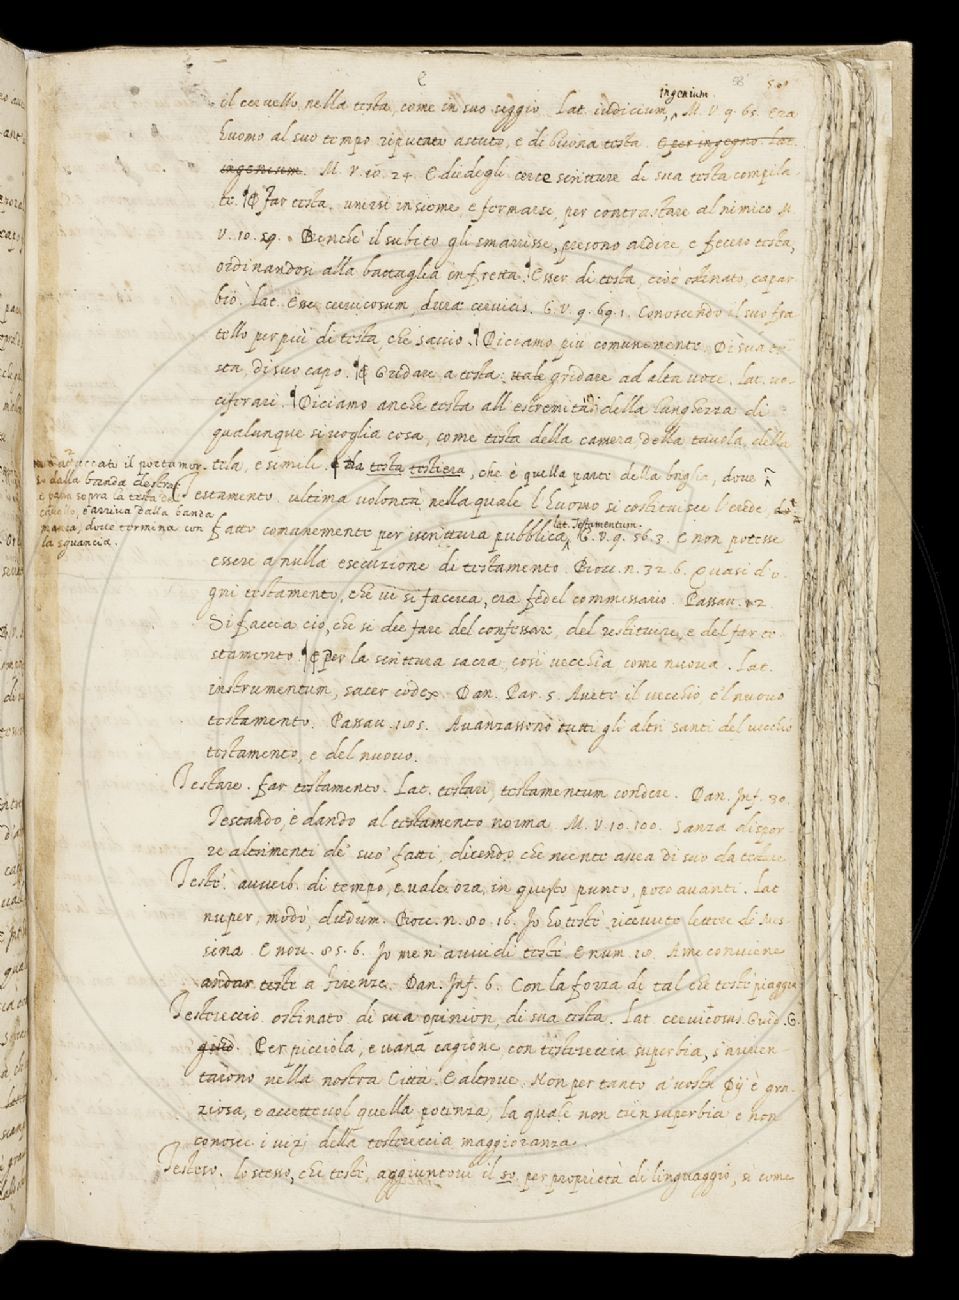 il cervello, nella testa, come in suo seggio. Lat. iudicium, ingenium. M. V. 9. 65. Era
huomo al suo tempo riputato astuto, e di buona testa. E per ingegno. Lat.
ingenium. M. V. 10. 24. E diedegli certe scritture di sua testa compila
te. ¶ E far testa. unirsi insieme e formarsi, per contrastare al nimico M.
V. 10. 59. Benchè il subito gli smarrisse, presono ardire, e fecero testa,
ordinandosi alla battaglia in fretta. ¶ Esser di testa, cioè ostinato, capar
bio. Lat. Esse cervicosum, durae cervicis. G. V. 9. 69. 1. Conoscendo il suo fra
tello per più di testa, che savio. ¶ Diciamo più comunemente. Di sua te
sta, di suo capo. ¶ E Gridare a testa. vale gridare ad alta voce. Lat. vo-
ciferari. ¶ Diciamo anche testa all' estremità della lunghezza di
qualunque si voglia cosa, come testa della camera, della tavola, della
tela, e simili. E Da testa testiera, che è quella parte della briglia, dove
è attaccato il portamor-
so dalla banda destra,
e passa sopra la testa del
cavallo, e arriva dalla banda
manca, dove termina con
la sguancia.
Testamento. ultima volontà nella quale l'huomo si costituisce l'erede,
fatto comunemente per iscrittura pubblica, lat. Testamentum. G. V. 9. 56. 3. E non potesse
essere a nulla esecuzione di testamento. Bocc. n. 32. 6. Quasi d'o-
gni testamento, che vi si faceva, era fedel commissario. Passav. 12
Si faccia ciò, che si dee fare del confessare, del restituire, e del far te-
stamento. ¶ E Per la scrittura sacra, così vecchia come nuova. Lat.
instrumentum, sacer codex. Dan. Par. 5. Avete il vecchio e'l nuovo
testamento. Passav. 185. Avanzassono tutti gli altri santi del vecchio
testamento, e del nuovo.
Testare. far testamento. Lat. testari, testamentum condere. Dan. Inf. 30.
Testando, e dando al testamento norma. M. V. 10. 100. Sanza dispor-
re altrimenti de' suo' fatti, dicendo che niente avea di suo da testare
Testè. avverb. di tempo, e vale ora, in questo punto, poco avanti. Lat
nuper, modò, dudum. Bocc. n. 80. 16. Io ho testè ricevuto lettere da Mes-
sina. E nov. 85. 6. Io me n' avvidi testè. E num. 20. A me conviene
andar testè a firenze. Dan. Inf. 6. Con la forza di tal che testè piaggia
Testereccio. ostinato di sua opinion, di sua testa. Lat cervicosus. Guid. G.
guid. Per picciola, e vana cagione con testereccia superbia, s'inven-
tarono nella nostra Città. E altrove. Non per tanto a' vostri Dij è gra-
ziosa, e accettevol quella potenza, la quale non è in superbia e non
conosce i vizj della testereccia maggioranza.
Testeso. lo stesso, che testè, aggiuntovi il so per proprietà di linguaggio, sì come